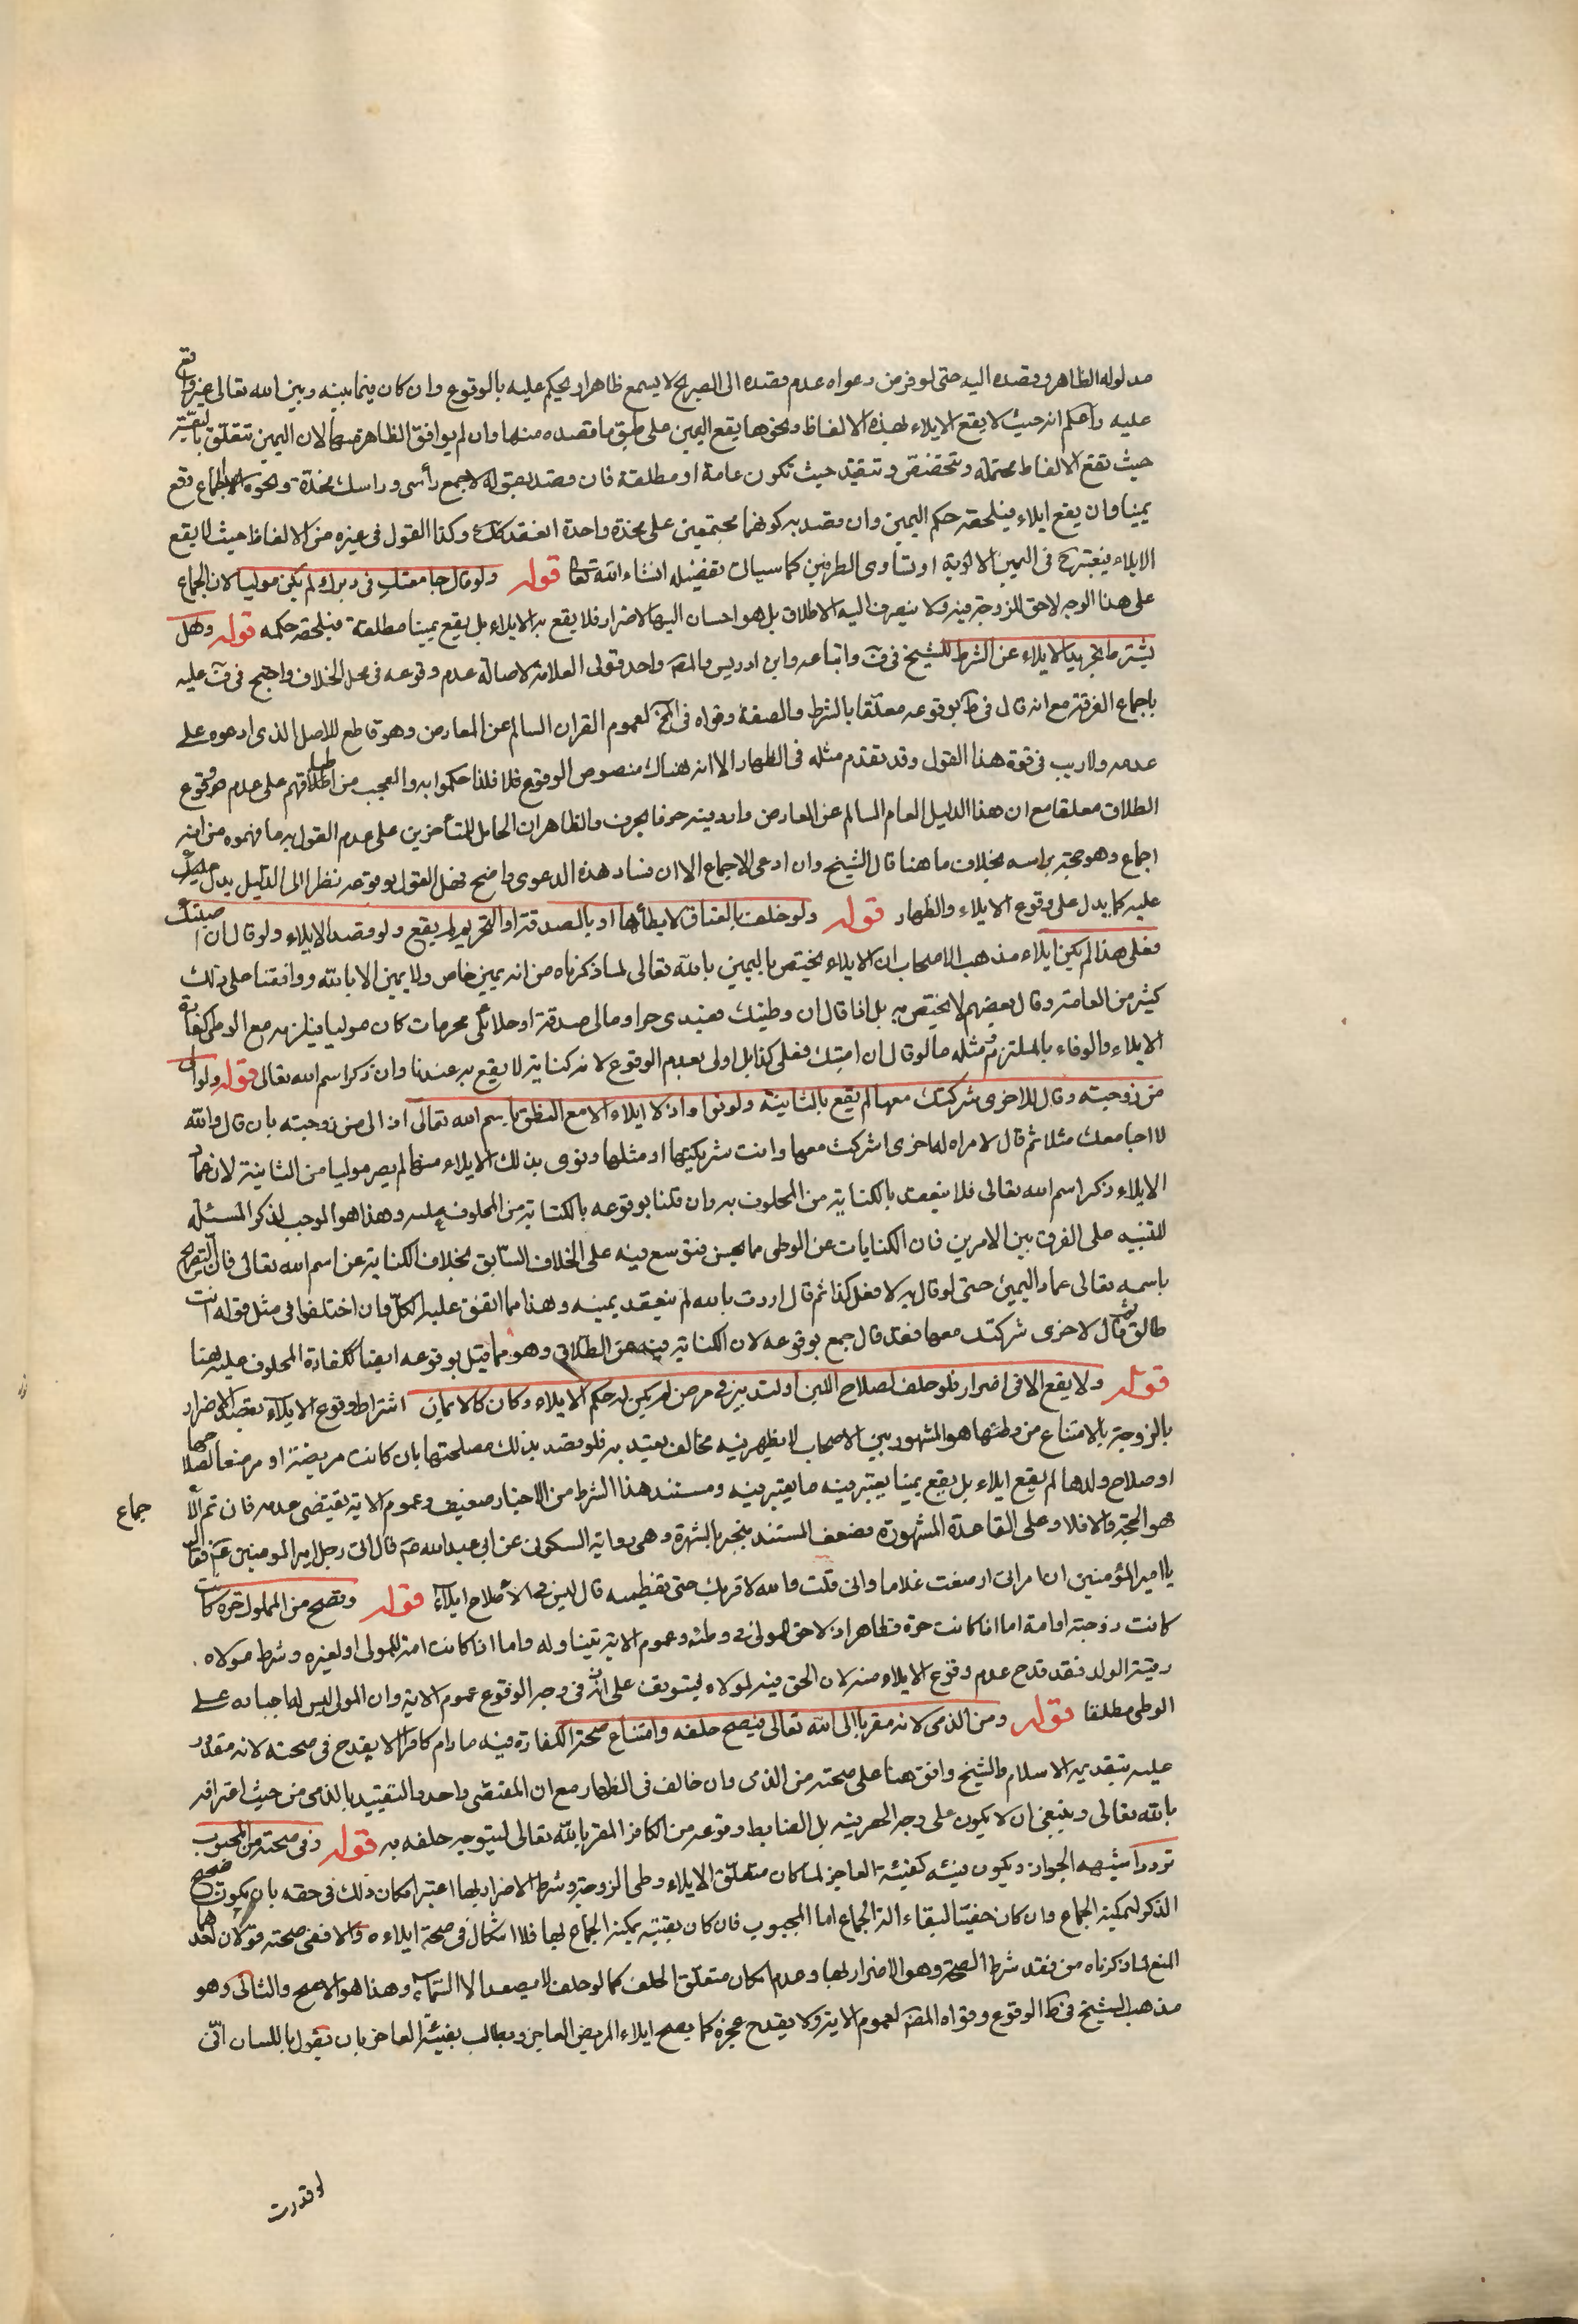 مدلوله الظاهر وقصده اليه حتى لو فرض دعواه عدم قصده الى الصريح لا يسمع ظاهرا ويحكم عليه بالوقوع وان كان فيما بينه وبين الله تعالى غير واقع
عليه واعلم انه حيث لا يقع الايلاء بهذه الالفاظ ونحوها يقع اليمين على طبق ما قصده منها وان لم يوافق الظاهر منها لان اليمين تتعلق بالنية
حيث تقع الالفاظ محتملة وتتخصص وتتقيد حيث تكون عامة او مطلقة فان قصد بقوله لا جمع رأسى وراسك مخدة ونحوه الجماع وقع
يمينا وان يقع ايلاء فيلحقه حكم اليمين وان قصد به كونهما مجتمعين على مخدة واحدة انعقد كذلك وكذا القول فى غيره من الالفاظ حيث لا يقع
الايلاء فيعتبر ح فى اليمين الاولوية او تساوى الطرفين كما سياتى تفصيله انشاء الله تعالى قوله ولو قال جامعتك فى دبرك لم يكن موليا لان الجماع
على هذا الوجه لا حق للزوجة فيه ولا ينصرف اليه الاطلاق بل هو احسان اليها لا اضرار فلا يقع به الايلاء بل يقع يمينا مطلقة فيلحقه حكمه قوله وهل
يشترط تجريد الايلاء عن الشرط للشيخ فى ف واتباعه وابن ادريس والمص واحد قولى العلامة لاصالة عدم وقوعه فى محل الخلاف واحتج فى ف عليه
باجماع الفرقة مع انه قال فى ط بوقوعه معلقا بالشرط والصفة وقواه فى لعموم القران السالم عن المعارض وهو قاطع للاصل الذى ادعوه على
عدمه ولا ريب فى قوة هذا القول وقد تقدم مثله فى الظهار الا انه هناك منصوص الوقوع فلذا حكموا به والعجب من اطباقهم على عدم وقوع
الطلاق معلقا مع ان هذا الدليل العام السالم عن المعارض وارد فيه حرفا بحرف والظاهر ان الحامل للمتأخرين على عدم القول به ما فهموه من انه
اجماع وهو حجة براسه بخلاف ما هنا قال الشيخ وان ادعى الاجماع الا ان فساد هذه الدعوى واضح فعل القول بوقوعه نظرا الى الدليل يدل
عليه كما يدل على وقوع الايلاء والظهار قوله ولو حلف بالعتاق لا يطأها او بالصدقة او التحريم لم يقع ولو قصد الايلاء ولو قال ان اصبتك
فعلى هذا لم يكن ايلاء مذهب الاصحاب ان الايلاء يختص باليمين بالله تعالى لما ذكرناه من انه يمين خاص ولا يمين الا بالله ووافقنا على ذلك
كثير من العامة وقال بعضهم لا يختص به بل اذا قال ان وطيتك فعبدى حر او مالى صدقة او حلائلى محرمات كان موليا فيلزمه مع الوطى كفارة
الايلاء والوفاء بالملتزم ومثله ما لو قال ان اصبتك فعلى كذا بل اولى بعدم الوقوع لانه كناية لا يقع به عندنا وان ذكر اسم الله تعالى قوله ولو الى
من زوجته وقال للاخرى شركتك معها لم يقع بالثانية ولو نواه اذ لا ايلاء الا مع النطق باسم الله تعالى اذا الى من زوجته بان قال والله
لا اجامعك مثلا ثم قال لامراة له اخرى اشركت معها وانت شريكتها او مثلها ونوى بذلك الايلاء منها لم يصر موليا من الثانية لان عماد
الايلاء ذكر اسم الله تعالى فلا ينعقد بالكناية من المحلوف به وان قلنا بوقوعه بالكناية من المحلوف عليه وهذا هو الموجب لذكر المسئلة
للتنبيه على الفرق بين الامرين فان الكنايات عن الوطى مما يحسن فتوسع فيه على الخلاف السابق بخلاف الكناية عن اسم الله تعالى فان التصريح
باسمه تعالى عماد اليمين حتى لو قال به لافعل كذا ثم قال اردت بالله لم ينعقد يمينه وهذا مما اتفق عليه الكل وان اختلفوا فى مثل قوله انت
طالق ثم قال لاخرى شركتك معها فقد قال جمع بوقوعه لان الكناية فيه عن الطلاق وهو مما قيل بوقوعه ايضا كالكفارة المحلوف عليه هنا
قوله ولا يقع الا فى اضرار فلو حلف لصلاح اللبن او لتدبير فى مرض لم يكن له حكم الايلاء وكان كالايمان اشتراط وقوع الايلاء بقصد الاضرار
بالزوجة بالامتناع من وطئها هو المشهور بين الاصحاب لا يظهر فيه مخالف يعتد به فلو قصد بذلك مصلحتها بان كانت مريضة او مرضعا لصلاحها
او صلاح ولدها لم يقع ايلاء بل يقع يمينا يعتبر فيه ما يعتبر فيه ومستند هذا الشرط من الاخبار ضعيف وعموم الاية يقتضى عدمه فان تم الاجماع
هو الحجة والا فلا وعلى القاعدة المشهورة فضعف المستند ينجبر بالشهرة وهى رواية السكونى عن ابى عبد الله ع قال اتى رجل امير المومنين ع فقال
يا امير المؤمنين ان امراتى ارضعت غلاما وانى قلت والله لا اقربك حتى تفطميه قال ليس فى الاصلاح ايلاء قوله وتصح من المملوك حرة كانت
كانت زوجته او امة اما اذا كانت حرة فظاهر اذ لا حق للمولى فى وطئه وعموم الاية يتناوله واما اذا كانت امة للمولى او لغيره وشرط مولاه
رقية الولد فقد قدح عدم وقوع الايلاء منه لان الحق فيه لمولاه ليتوقف على اذنه فى وجه الوقوع عموم الاية وان المولى ليس له اجباره على
الوطى مطلقا قوله ومن الذمى لانه مقر بالى الله تعالى فيصح حلفه وامتناع صحة الكفارة فيه ما دام كافرا لا يقدح فى صحته لانه مقدور
عليه بتقديره الاسلام والشيخ وافق هنا على صحته من الذمى وان خالف فى الظهار مع ان المقتضى واحد والتقييد بالذمى من حيث اعترافه
بالله تعالى وينبغى ان لا يكون على وجه الحصر فيه بل الضابط وقوعه من الكافر المقر بالله تعالى ليتوجه حلفه به قوله وفى صحته من المجبوب
تردد اشبهه الجواز ويكون فيئه كفيئة العاجز لما كان متعلق الايلاء وطى الزوجة وشرط الاضرار بها اعتبر امكان ذلك فى حقه بان يكون صحيح
الذكر ليمكنه الجماع وان كان خصيا لبقاء الة الجماع اما المجبوب فان كان بقيته يمكنه الجماع بها فلا اشكال فى صحة ايلاءه والا ففى صحته قولان احدهما
المنع لما ذكرناه من فقد شرط الصحة وهو الاضرار بها وعدم امكان متعلق الحلف كما لو حلف لا يصعد الا السماء وهذا هو الاصح والثانى وهو
مذهب الشيخ فى ط الوقوع وقواه المص لعموم الاية ولا يقدح عجزه كما يصح ايلاء المريض العاجز ويطالب بفيئة العاجز بان يقول باللسان انى
جماع
لو قدرت